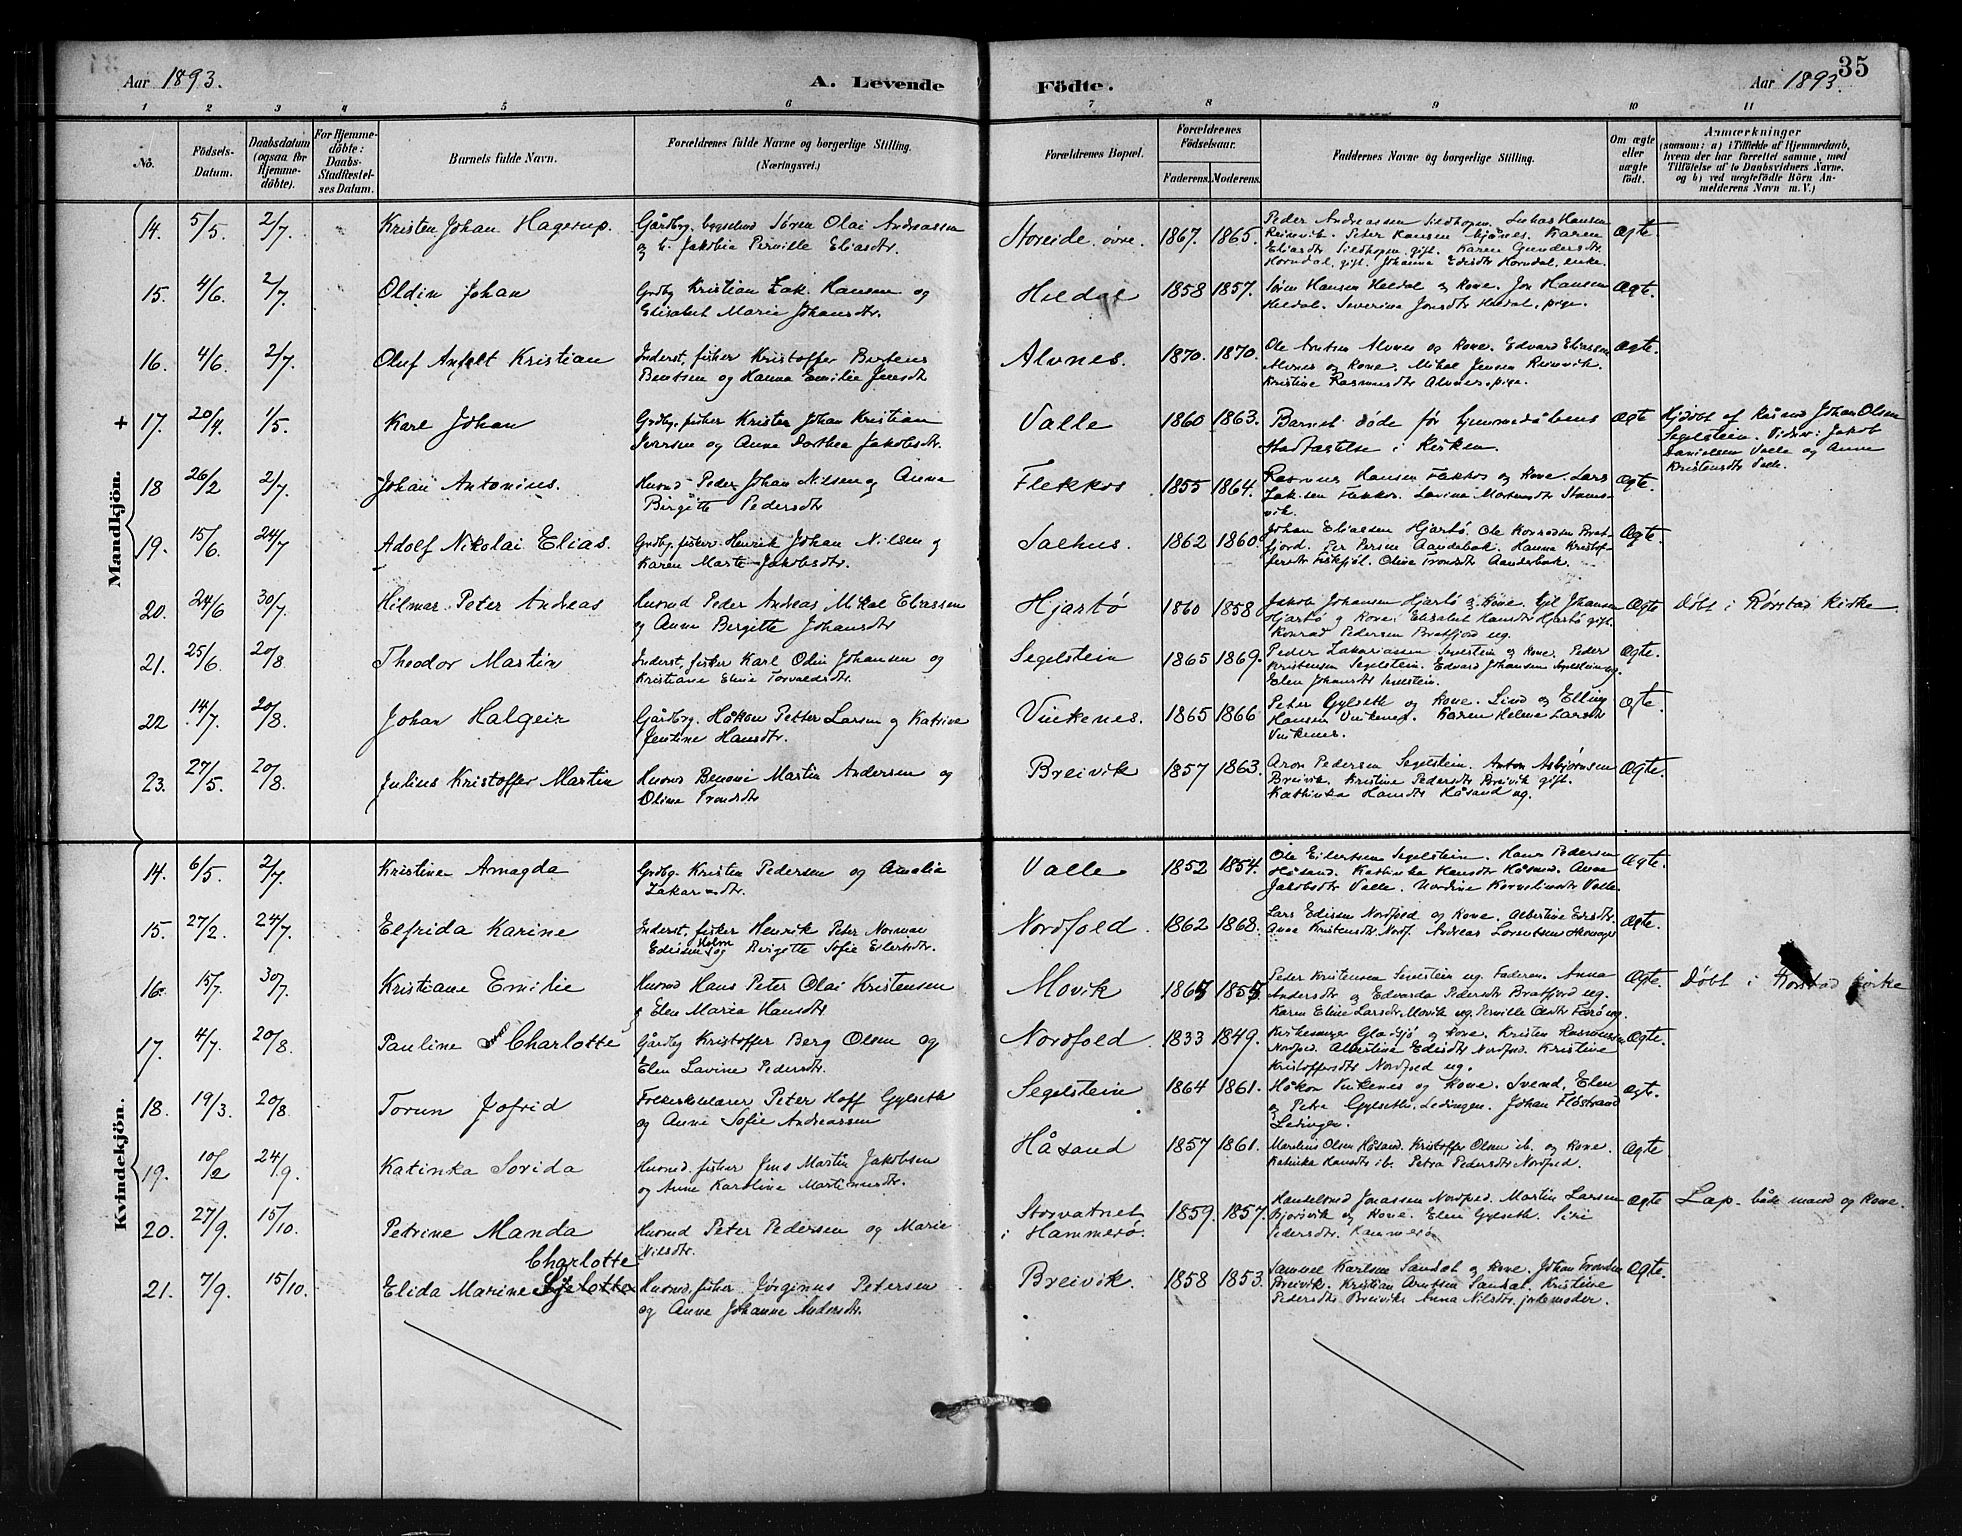 Aar 1893. A. Levende Födte. Aar 1893. 35
1 2 3 4 5 6 7 8 9 10 11
No. Födsels-Datum. Daabsdatum (ogsaa for Hjemmedöbte). For Hjemmedöbte: Daabs-Stadfæstelses Datum. Barnets fulde Navn. Forældrenes fulde Navne og borgerlige Stilling. (Næringsvei.) Forældrenes Bopæl. Forældrenes Födselsaar. Faderens. Moderens. Faddernes Navne og borgerlige Stilling. Om ægte eller uægte födt. Anmærkninger (saasom: a) i Tilfælde af Hjemmedaab, hvem der har forrettet samme, med Tilföielse af to Daabsvidners Navne, og b) ved uægtefödte Börn Anmelderens Navn m. V.)
Mandkjön.
14. 5/5. 2/7. Kristen Johan Hagerup. Gårdbg. bygselmd Sören Olai Andreassen
og h. Jakobia Pernille Eliasdtr. Storeide, övre. 1867. 1865. Peder Andreassen Sildhopen. Lukas Hansen
Reinvik. Peter Hansen Mjönes. Karen
Eliasdtr Sildhopen gift. Karen Gundersdtr.
Horndal, gift. Johanna Edisdtr Horndal, enke. Ægte.
15. 4/6. 2/7. Oldin Johan Grdbg Kristian Zak. Hansen og
Elisabet Marie Johansdtr. Heldal 1858 1857. Sörn Hansen Heldal og kone. Jon Hansen
Heldal. Severine Jonsdtr Heldal, pige. Ægte.
16. 4/6. 2/7. Oluf Antelt Kristian Inderst, fisker Kristoffer Bertens
Bentsen og Hanna Emilie Jensdtr Alvnes. 1870. 1870. Ole Arntsen Alvnes og kone. Edvard Eliassen
Alvnes og kone. Mikal Jensen Reinvik.
Kristine Rasmusdtr Alvnes, pige. Ægte.
+ 17. 20/4. 1/5. Karl Johan Grdbg. fisker Krister Johan Kristian
Iversen og Anne Dorthea Jakobsdtr. Valle 1860 1863. Barnet döde för hjemmedåbens
Stadfæstelse i Kirken Ægte Hjdöbt af Johan Olsen
Segelstein. Vidner: Jakob
Danielsen Valle og Anne
Kristensdtr Valle.
18 26/2 2/7. Johan Antonius. Husmd Peder Johan Nilsen og Anne
Birgitte Pedersdtr Flekkos 1855 1864. Rasmus Hansen Flekkos og kone. Lars
Zak.sen Flekkos. Lavina Mortensdtr Stams-
vik. Ægte.
19. 15/6. 24/7 Adolf Nikolai Elias. Grdbg. fisker Henrik Johan Nilsen og
Karen Marte Jakobsdtr. Salhus. 1862 1860. Johan Eliassen Hjartö. Ole Konradsen Brat-
fjord. Per Persen Aandebak. Hanna Kristof-
fersdtr Fiskfjöl. Oline Trondsdtr Aandebak Ægte.
20. 24/6 30/7. Hilmar Peter Andreas Husmd Peder Andreas Mikal Eliassen
og Anne Bergitte Johansdtr Hjartö 1860 1858 Jakob Johansen Hjartö og kone. Johansen
Hjartö og kone. Elisabet Hansdtr Hjartö gift.
Konrad Pedersen Bratfjord ug. Ægte Döbt i Rörstad kirke
21. 25/6. 20/8. Theodor Martin Inderst, fisker Karl Odin Johansen og
Kristiane Eline Torvaldsdtr. Segelstein 1865 1869. Peder Zakariassen Segelstein og kone. Peder
Kristensen Segelstein. Edvard Johansen Segelstein ug.
Elen Johansdtr Segelstein. Ægte.
22 14/7. 20/8. Johan Halgeir Gårdbg. Håkon Petter Larsen og Katrine
Jentine Hansdtr. Vinkenes. 1865 1866 Peter Gylseth og kone. Lind og Elling
Hansen Vinkenes. Karen Helene Larsdtr
Vinkenes. Ægte.
23. 27/5. 20/8. Julius Kristoffer Martin Husmd Benoni Martin Andersen og
Oline Trondsdtr Breivik 1857 1863. Aron Pedersen Segelstein. Anton Asbjörnsen
Breivik. Kristine Pedersdtr Breivik gift.
Kathinka Hansdtr Håsand ug. Ægte.
Kvindekjön.
14. 6/5. 2/7. Kristine Amagda Grdbg. Kristen Pedersen og Amalie
Zakar dtr. Valle 1852 1854. Ole Eilertsen Segelstein. Hans Pedersen
Håsand. Kathinka Hansdtr Håsand. Anne
Jakobsdtr Valle. Nordine Korneliusdtr Valle. Ægte.
15. 27/2. 24/7. Elfrida Karine Inderst, fisker Henrik Peter Norman
Edissen Holm og Birgitte Sofie Eilertsdtr. Nordfold 1862 1868. Lars Edissen Nordfold og kone. Albertine Edisdtr.
Anna Kristensdtr Nordf. Andreas Lorentsen Ægte.
16. 15/7. 30/7. Kristiane Emilie Husmd Hans Peter Olai Kristensen
og Elen Maria Hansdtr Movik 1865 1855. Peder Kristensen Segelstein ug. Faderen. Anna
Andersdtr og Edvarda Pedersdtr Bratfjord ug.
Karen Eline Larsdtr Movik ug. Pernille Olsdtr Farö ug. Ægte. Döbt i Rörstad kirke
17. 4/7. 20/8. Pauline Charlotte Gårdbg Kristoffer Berg Olsen og
Elen Lavine Pedersdtr. Nordfold. 1833 1849. Kirkesanger Gladsjö og kone. Kristen Rasmussen
Nordfold. Albertine Edisdtr Nordfold. Kristine
Kristoffersdtr Nordfold ug. Ægte.
18. 19/3. 20/8. Torun Jofrid Folkeskolelærer Peter Hoff Gylseth
og Anne Sofie Andreassen Segelstein 1864 1861. Håkon Vinkenes og kone. Svend, Elen
og Petra Gylseth, Ledingen. Johan Flöstrand
Ledingen. Ægte.
19. 10/2 24/9. Katinka Sorida Husmd. fisker Jens Martin Jakobsen
og Anne Karoline Martinusdtr. Håsand 1857 1861. Martinus Olsen Håsand. Kristoffer Olsen ib. og kone.
Katinka Hansdtr ib. Petra Pedersdtr Nordfold. Ægte
20. 27/9. 15/10. Petrine Manda Husmd Peter Pedersen og Marie
Nilsdtr. Storvatnet
i Hammerö. 1859. 1857. Handelsmd Jonassen Nordfold. Martin Larsen
Bjorsvik og kone. Elen Gylseth. Siri
Pedersdtr. Hammerö Ægte Lap. både mand og kone.
21. 7/9. 15/10. Elida Marine Charlotte Husmd, fisker Jörginus Petersen
og Anne Johanne Andersdtr. Breivik. 1858 1853. Samuel Karlsen Sandal og kone. Johan Trondsen
Breivik. Kristian Arntsen Sandal. Kristine
Pedersdtr Breivik. Anna Nilsdtr. jordemoder. Ægte.